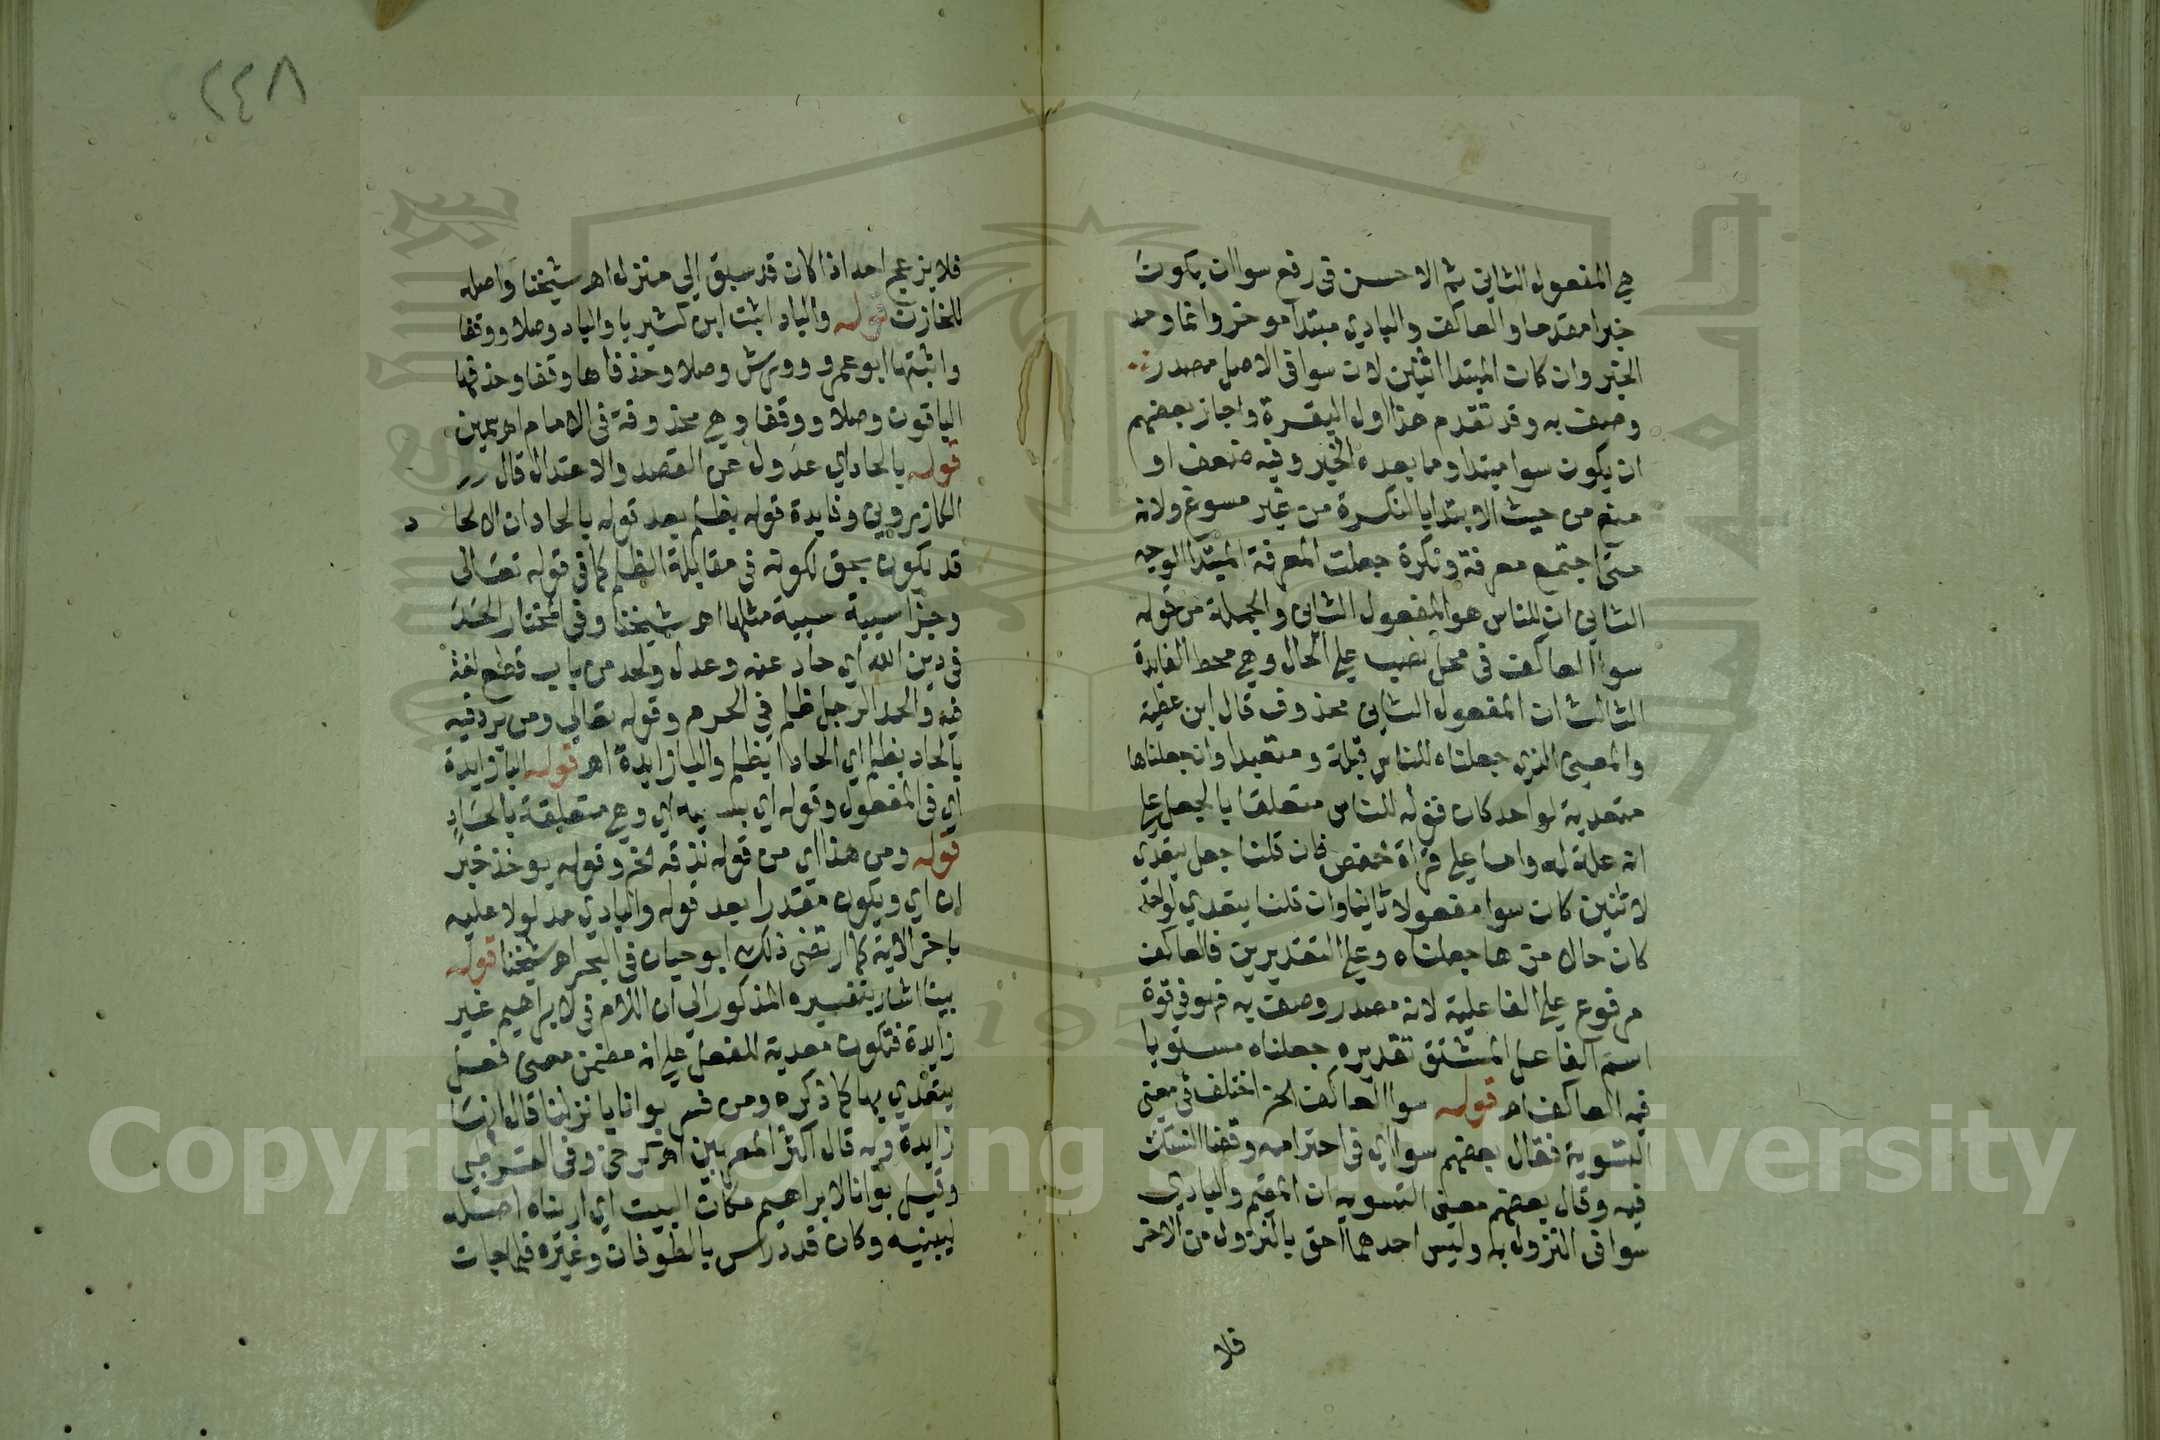 هي المفعول الثاني ثم الاحسن في رفع سوا ان يكون
خبرا مقدما والعاكف والبادي مبتدا موخر وانما وحد
الخبر وان كان المبتدا اثنين لان سوا في الاصل مصدر
وصف به وقد تقدم هذا اول البقرة واجاز بعضهم
ان يكون سوا مبتدا وما بعده الخبر وفيه ضعف او
منع من حيث الابتدا بالنكرة من غير مسوغ ولانه
متى اجتمع معرفة ونكرة جعلت المعرفة المبتدا الوجه
الثاني ان للناس هو المفعول الثاني والجملة من قوله
سوا العاكف في محل نصب على الحال وهي محط الفايدة
الثالث ان المفعول الثاني محذوف قال ابن عطية
والمعنى الذي جعلناه للناس قبلة ومتعبدا وان جعلناها
متعدية لواحد كان قوله للناس متعلقا بالجعل على
انه علة له واما على قراة حفص فان قلنا جعل يتعدي
لاثنين كان سوا مفعولا ثانيا وان قلنا يتعدي لواحد
كان حالا من ها جعلناه وعلى التقديرين فالعاكف
مرفوع على الفاعلية لانه مصدر وصف به فهو في قوة
اسم الفاعل المشتق تقديره جعلناه مستويا
فيه العاكف اه قوله سوا العاكف الخ اختلف في معنى
التسوية فقال بعضهم سوا اي في احترامه وقضا النسك
فيه وقال بعضهم معنى التسويه ان المقيم والبادي
سوا في النزول به وليس احدهما احق بالنزول من الاخر
فلا
٢٤٨
فلا يزعج احد اذا كان قد سبق الي منزل اه شيخنا واصله
للخازن قوله والباد اثبت ابن كثير يا والباد وصلا ووقفا
واثبتها ابو عمرو وورش وصلا وحذفاها وقفا وحذفها
الباقون وصلا ووقفا وهي محذوفة في الامام اه سمين
قوله بالحاد اي عدول عن القصد والاعتدال قال
الكازروني وفايدة قوله بظلم بعد قوله بالحاد ان الالحا د
قد يكون بحق لكونه في مقابلة الظلم كما في قوله تعالى
وجزا سيية سيية مثلها اه شيخنا وفي المختار الحد
في دين الله اي حاد عنه وعدل ولحد من باب قطع لغة
فيه والحد الرجل ظلم في الحرم وقوله تعالي ومن يرد فيه
بالحاد بظلم اي الحادا بظلم والبا زايدة اه قوله البا زايدة
اي في المفعول وقوله اي بسببه اي وهي متعلقة بالحاد
قوله ومن هذا اي من قوله نذقه الخ وقوله يوخذ خبر
ان اي ويكون مقدرا بعد قوله والبادي مدلولا عليه
باخر الاية كما ارتضى ذلك ابو حيان في البحر اه شيخنا قوله
بينا اشار بتفسيره المذكور الي ان اللام في لابراهيم غير
زايدة فتكون معدية للفعل على انه مضمن معنى فعل
يتعدي بها كما ذكره ومن فسر بوانا بانزلنا قال انها
زايدة وبه قال اكثر المعربين اه كرخي وفي القرطبي
وقيل بوانا لابراهيم مكان البيت اي اريناه اصله
ليبنيه وكان قد درس بالطوفان وغيره فلما جات
Copyright © King Saud University